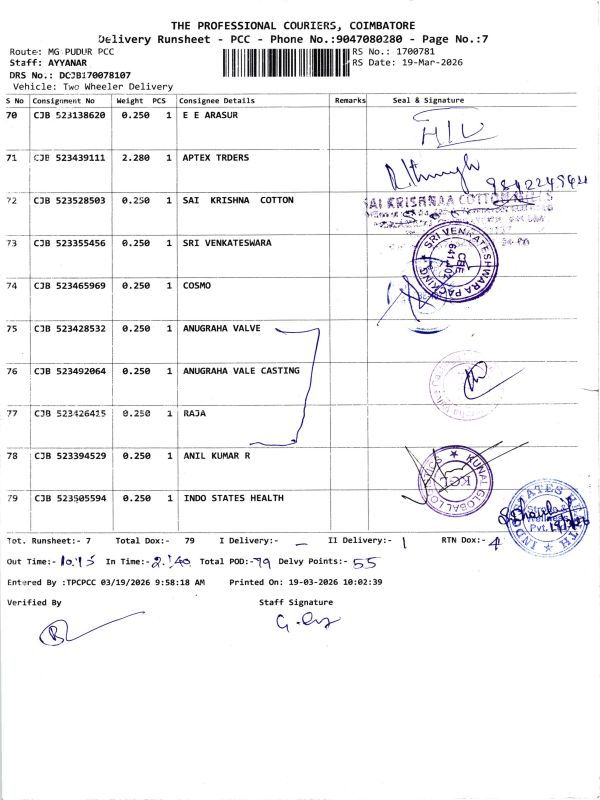 THE PROFESSIONAL COURIERS, COIMBATORE
Delivery Runsheet - PCC - Phone No.:9047080280 - Page No.:7
Route: MG PUDUR PCC
RS No.: 1700781
Staff: AYYANAR
RS Date: 19-Mar-2026
DRS No.: DCJB170078107
Vehicle: Two Wheeler Delivery
S No Consignment No Weight PCS Consignee Details Remarks Seal & Signature
70 CJB 523138620 0.250 1 E E ARASUR H/L
71 CJB 523439111 2.280 1 APTEX TRDERS
72 CJB 523528503 0.250 1 SAI KRISHNA COTTON SAI KRISHNAA COTTON MILLS
73 CJB 523355456 0.250 1 SRI VENKATESWARA SRI VENKATESHWARA PACKING CBE
74 CJB 523465969 0.250 1 COSMO
75 CJB 523428532 0.250 1 ANUGRAHA VALVE
76 CJB 523492064 0.250 1 ANUGRAHA VALE CASTING
77 CJB 523426415 0.250 1 RAJA
78 CJB 523394529 0.250 1 ANIL KUMAR R KUNAL GLOBAL LOGISTICS KGL
79 CJB 523505594 0.250 1 INDO STATES HEALTH INDO STATES HEALTH Pvt.
Tot. Runsheet:- 7 Total Dox:- 79 I Delivery:- - II Delivery:- 1 RTN Dox:- 4
Out Time:- 10.15 In Time:- 2.40 Total POD:- 79 Delvy Points:- 55
Entered By :TPCPCC 03/19/2026 9:58:18 AM Printed On: 19-03-2026 10:02:39
Verified By Staff Signature